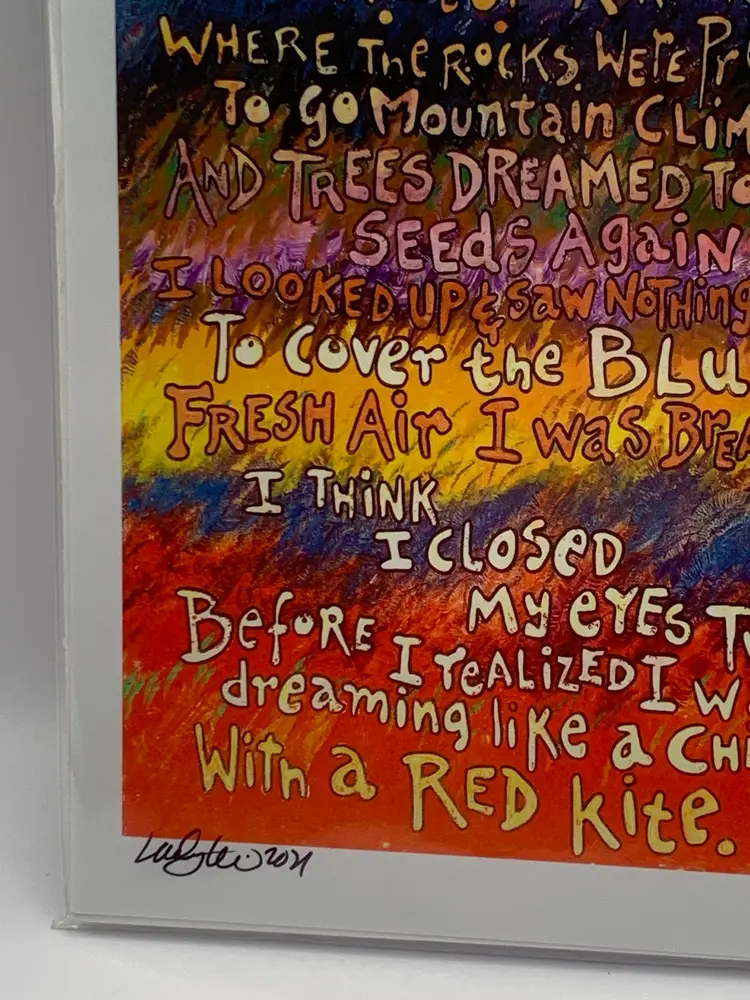 WHERE The ROCKS WERE Pr
To Go Mountain CLIM
AND TREES DREAMED To
SEEdS AgaiN
I LOOKED UP & Saw NoTHing
To Cover the BLU
FRESH Air I was BreA
I THiNK
I CLOSED
My eyES Tw
BeFoRE I reALiZED I W
dreaming like a CHi
With a RED kite.
2021